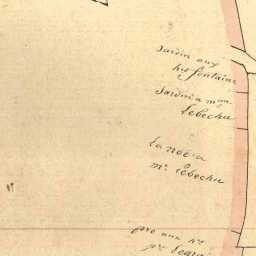 Jardin aux
hrs fontaine
Jardin a mme
Lebechu
La noë a
mr Lebechu
pré aux hrs